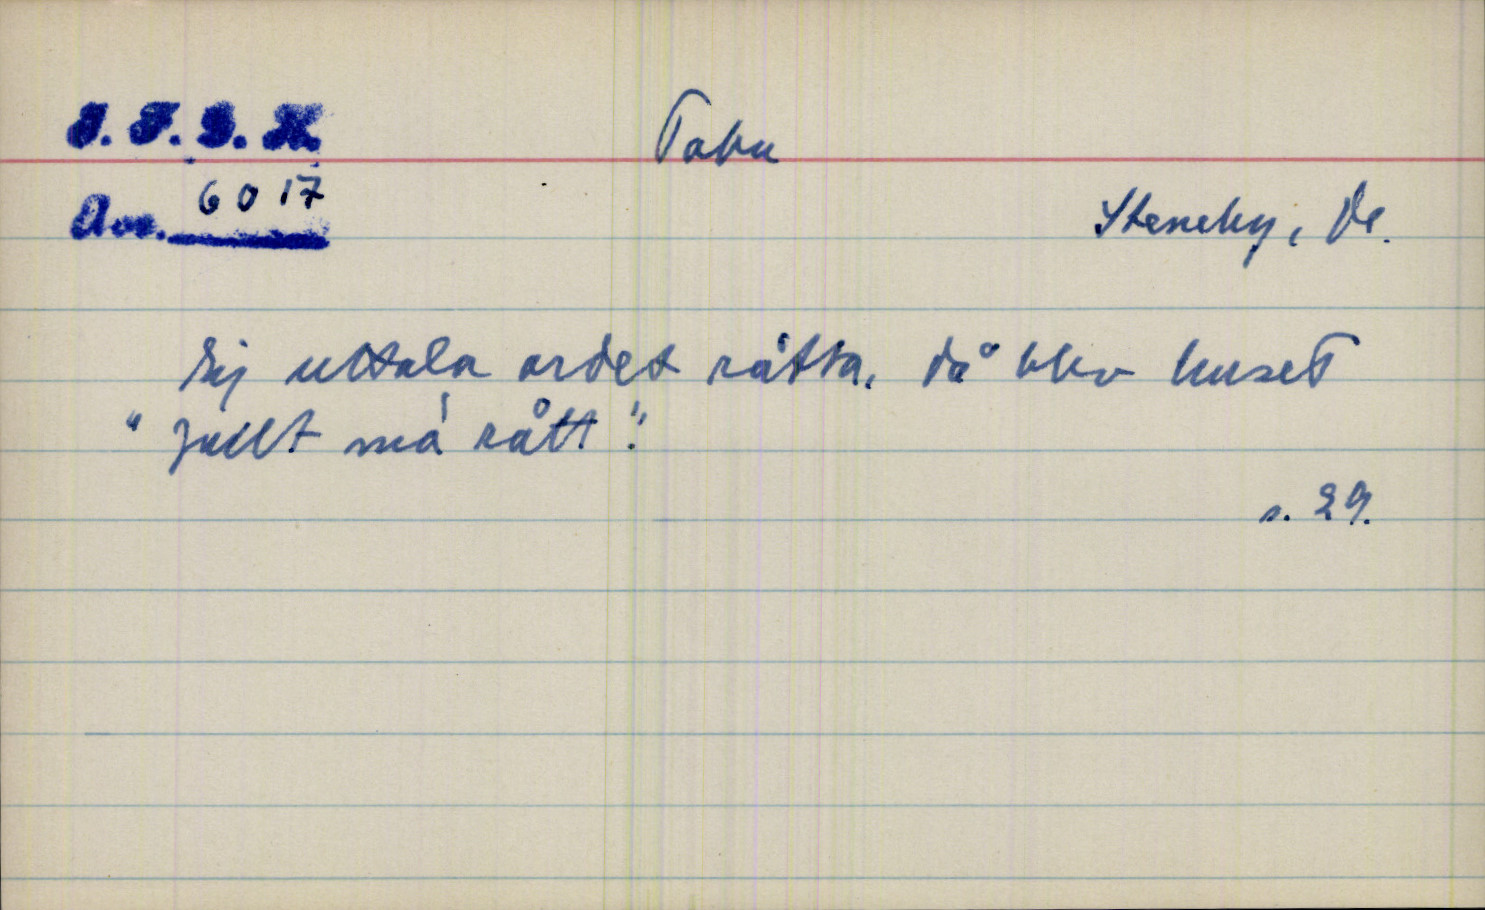 I. F. G. H.
Tabu
Acc. 6017
Steneby, Ds.
Ej uttala ordet råtta, då blev huset
"fullt må rått".
s. 29.